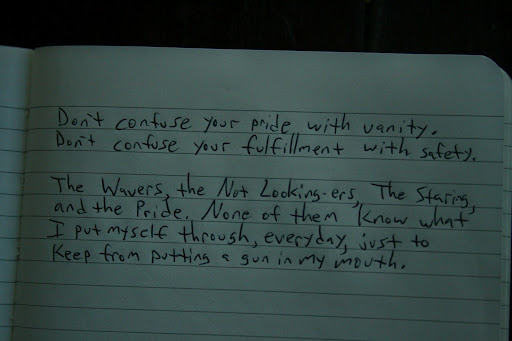 Don't confuse your pride with vanity.
Don't confuse your fulfillment with safety.
The Wavers, the Not Looking-ers, The Staring,
and the Pride. None of them Know what
I put myself through, everyday, just to
Keep from putting a gun in my mouth.